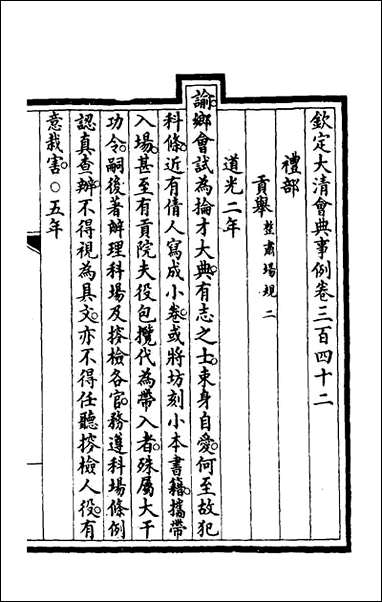 欽定大清會典事例卷三百四十二
禮部
貢舉整肅場規二
道光二年
諭鄉會試為掄才大典有志之士束身自愛何至故犯
科條近有倩人寫成小卷或將坊刻小本書籍攜帶
入場甚至有貢院夫役包攬代為帶入者殊屬大干
功令嗣後著辦理科場及搜檢各官務遵科場條例
認真查辦不得視為具文亦不得任聽搜檢人役有
意栽害○五年